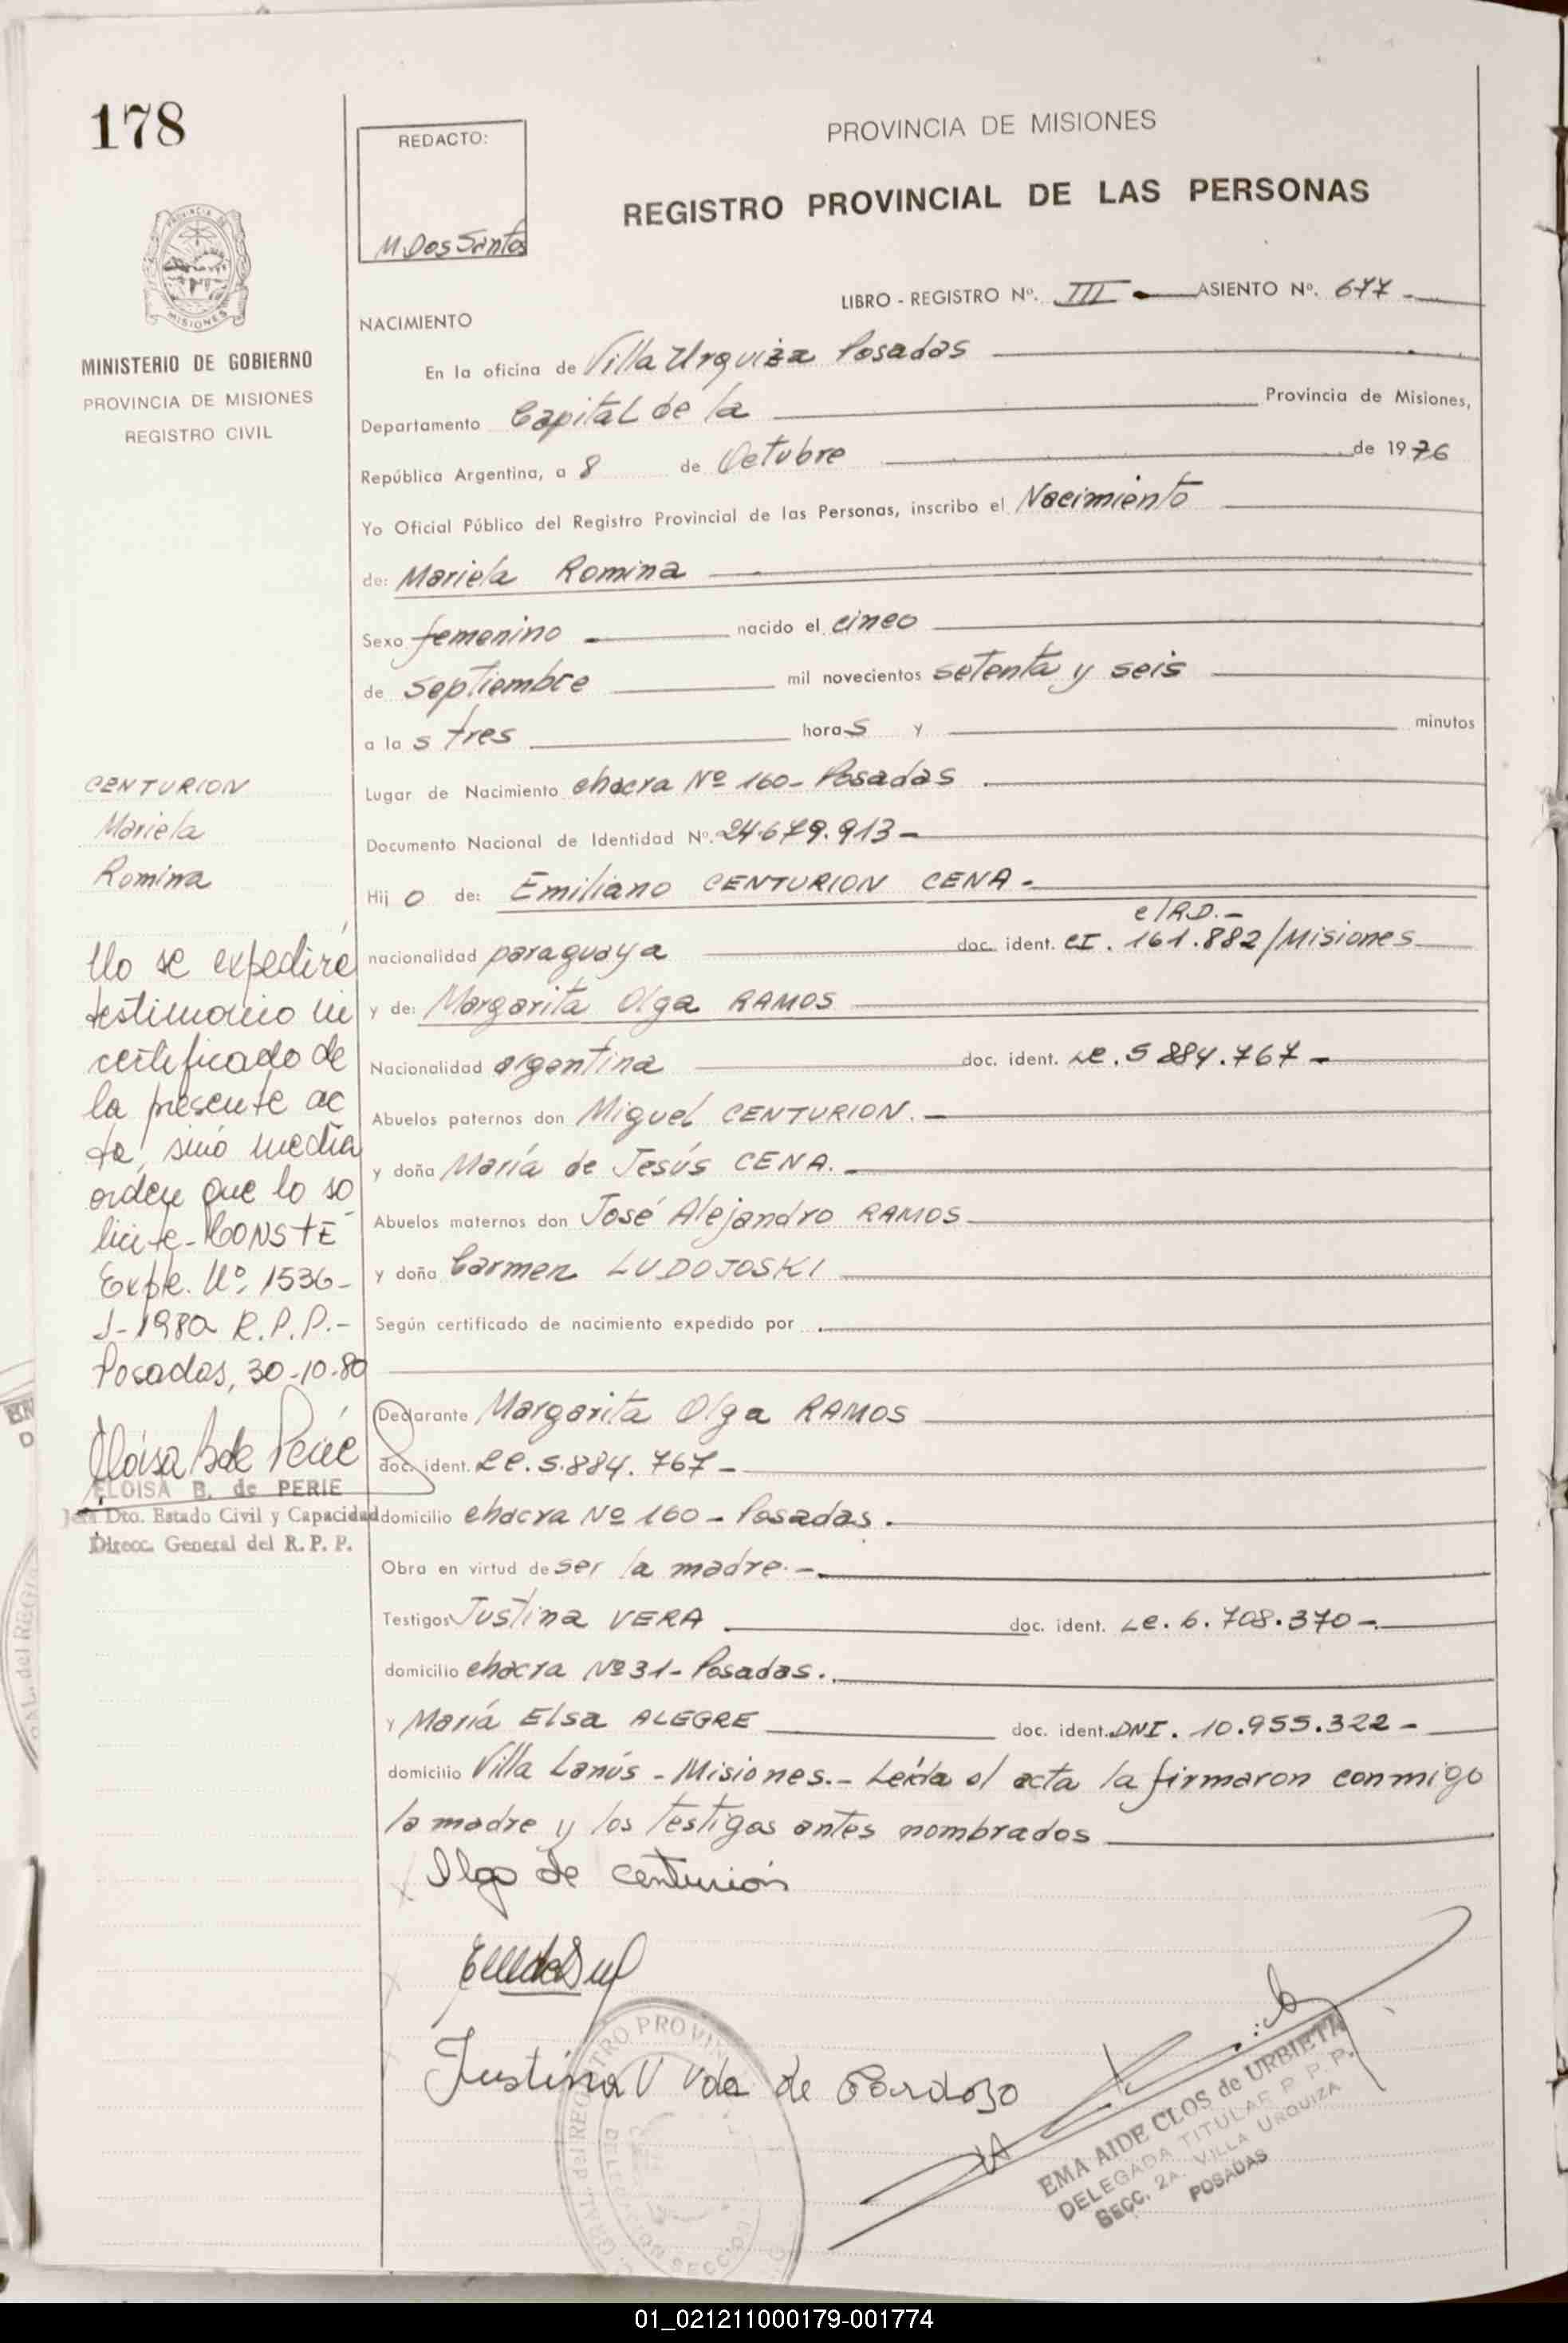 178
REDACTO:
M. Dos Santos
PROVINCIA DE MISIONES
REGISTRO PROVINCIAL DE LAS PERSONAS
PROVINCIA DE
MISIONES
MINISTERIO DE GOBIERNO
PROVINCIA DE MISIONES
REGISTRO CIVIL
LIBRO - REGISTRO Nº. III - ASIENTO Nº. 677 -
NACIMIENTO
En la oficina de Villa Urquiza Posadas
Departamento Capital de la Provincia de Misiones,
República Argentina, a 8 de Octubre de 1976
Yo Oficial Público del Registro Provincial de las Personas, inscribo el Nacimiento
de: Mariela Romina
Sexo femenino nacido el cinco
de septiembre mil novecientos setenta y seis
a la s tres hora s y minutos
Lugar de Nacimiento chacra Nº 160 - Posadas
Documento Nacional de Identidad Nº. 24.679.913 -
Hij o de: Emiliano CENTURION CENA -
c/RD.-
nacionalidad paraguaya doc. ident. CI. 161.882/Misiones
y de: Margarita Olga RAMOS
Nacionalidad argentina doc. ident. LC. 5 884.767 -
Abuelos paternos don Miguel CENTURION. -
y doña María de Jesús CENA. -
Abuelos maternos don José Alejandro RAMOS
y doña Carmen LUDOJOSKI
Según certificado de nacimiento expedido por
Declarante Margarita Olga RAMOS
doc. ident. LC. 5.884.767 -
domicilio chacra Nº 160 - Posadas.
Obra en virtud de ser la madre. -
Testigos Justina VERA doc. ident. LC. 6.708.370 -
domicilio chacra Nº 31 - Posadas.
y María Elsa ALEGRE doc. ident. DNI. 10.955.322 -
domicilio Villa Lanús - Misiones. - Leída el acta la firmaron conmigo
la madre y los testigos antes nombrados
CENTURION
Mariela
Romina
No se expedirá
testimonio ni
certificado de
la presente ac
ta, sinó media
orden que lo so
licite - CONSTE
Expte. Nº. 1536 -
J - 1980 R.P.P. -
Posadas, 30-10-80
Eloisa B de Perié
ELOISA B. de PERIE
Jefa Dto. Estado Civil y Capacidad
Direcc. General del R. P. P.
Olga de Centurión
Justina V Vda de Cardozo
GRAL. del REGISTRO PROVIN
DELEGACION SECCION
EMA AIDE CLOS de URBIETA
DELEGADA TITULAR R. P. P.
SECC. 2A. VILLA URQUIZA
POSADAS
RAL. del REGIS
01_021211000179-001774